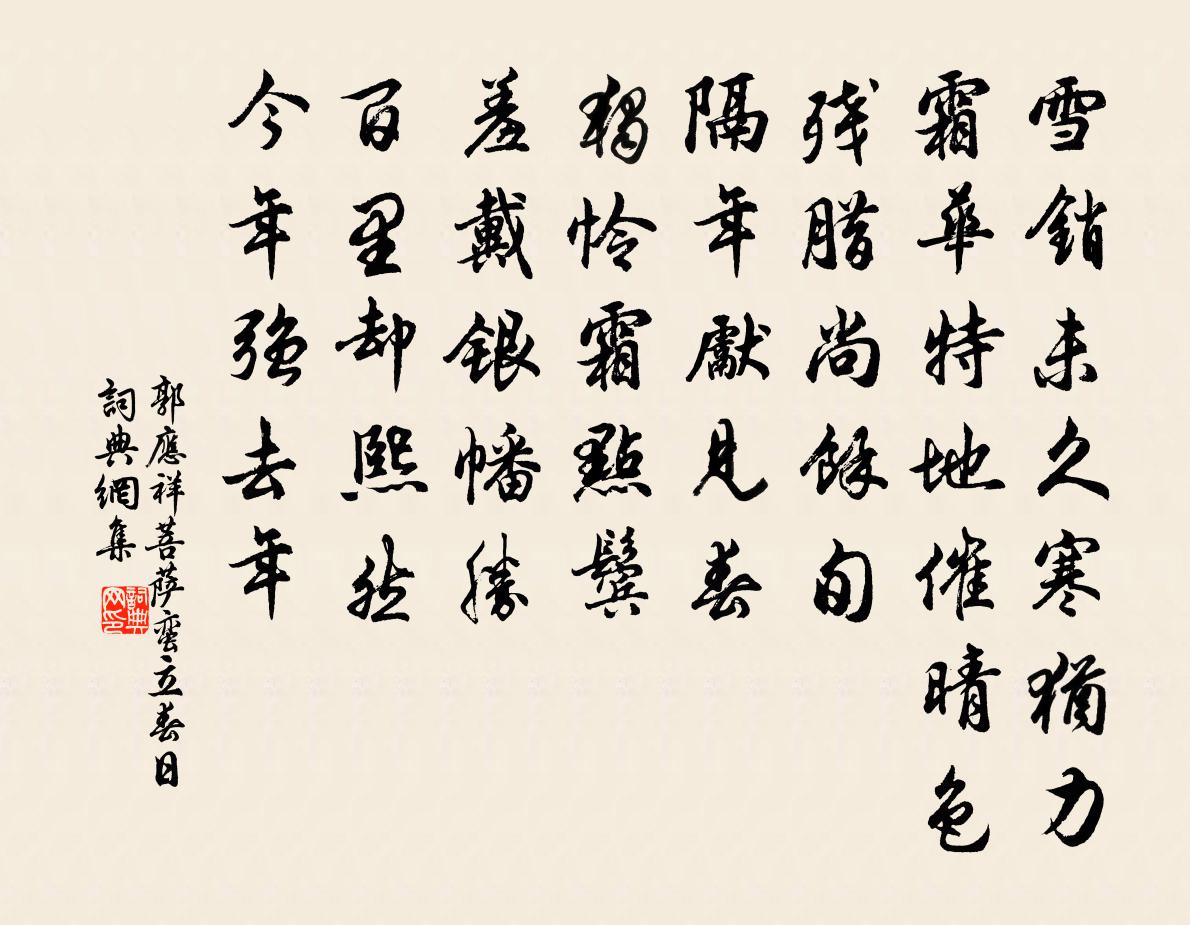 雪銷未久寒猶力
霜華特地催晴色
殘腊尚餘旬
隔年獻見春
獨怜霜點鬢
羞戴銀幡勝
百里却熙然
今年強去年
郭應祥菩萨蛮立春日
詞典網集
詞典网印